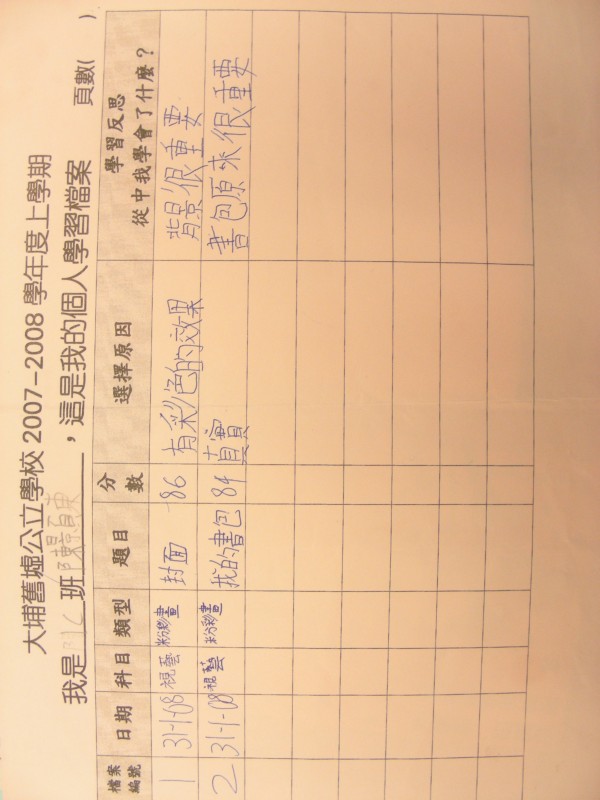 大埔舊墟公立學校 2007-2008 學年度上學期
我是 班 ，這是我的個人學習檔案 頁數( )
檔案編號 日期 科目 類型 題目 分數 選擇原因 學習反思 從中我學會了什麼？
1 31-1-08 視藝 粉彩畫 封面 86 有彩色的效果 背景很重要
2 31-1-08 視藝 粉彩畫 我的書包 84 真實 書包原來很重要